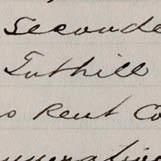 Seconde
Tuthill
Rent Co